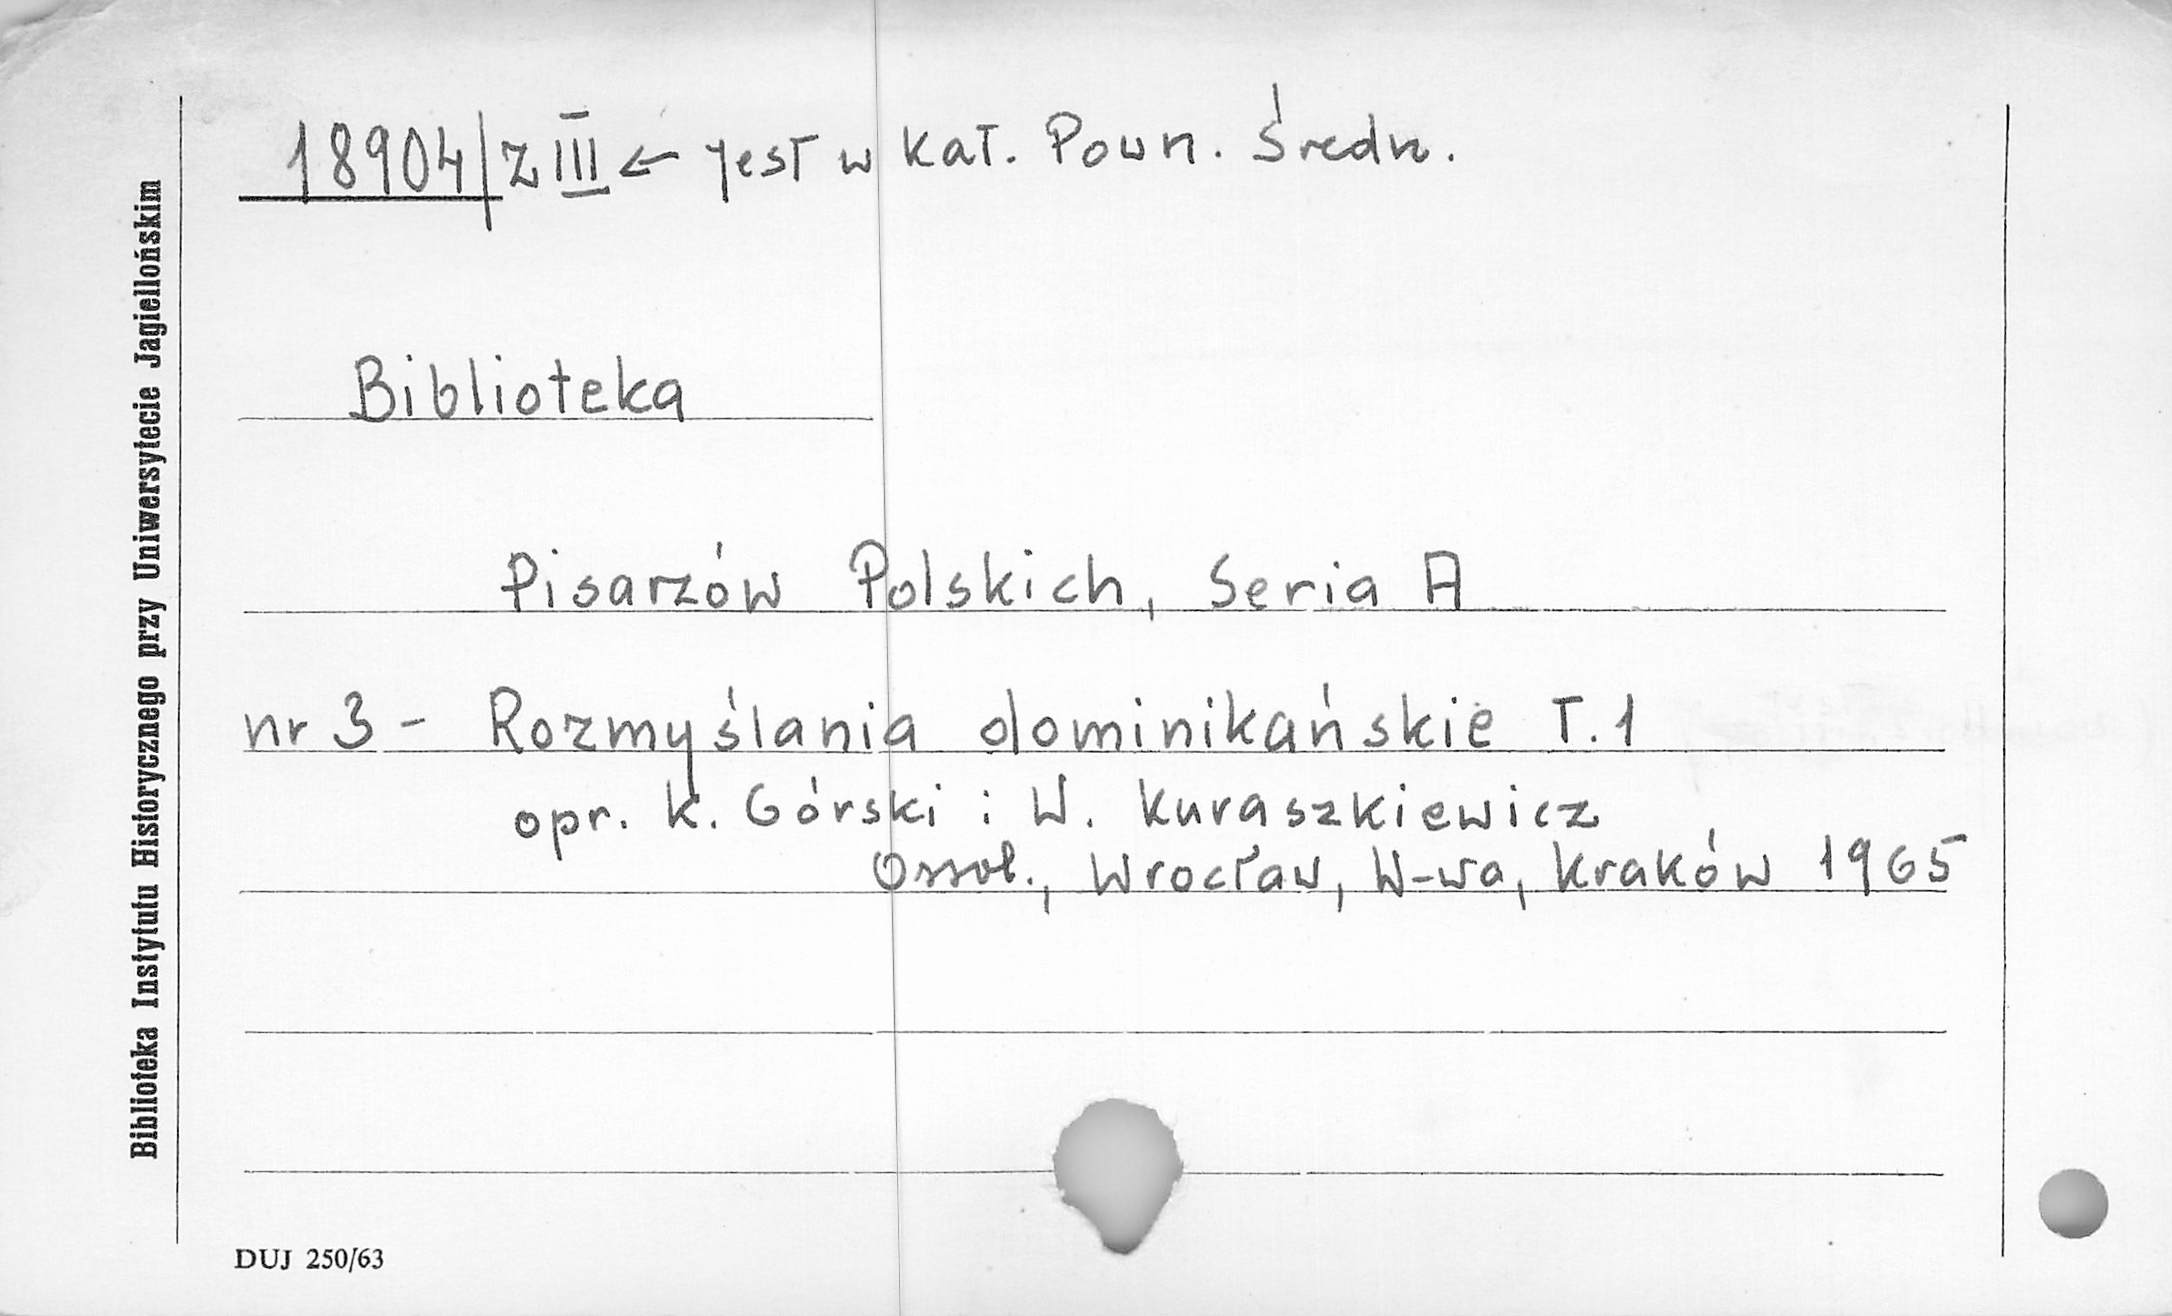 18904/Z III ← jest w kat. Pown. Średn.
Biblioteka
Pisarzów Polskich, Seria A
nr 3 - Rozmyślania dominikańskie T.1
opr. K. Górski i W. Kuraszkiewicz
Ossol., Wrocław, W-wa, Kraków 1965
Biblioteka Instytutu Historycznego przy Uniwersytecie Jagiellońskim
DUJ 250/63